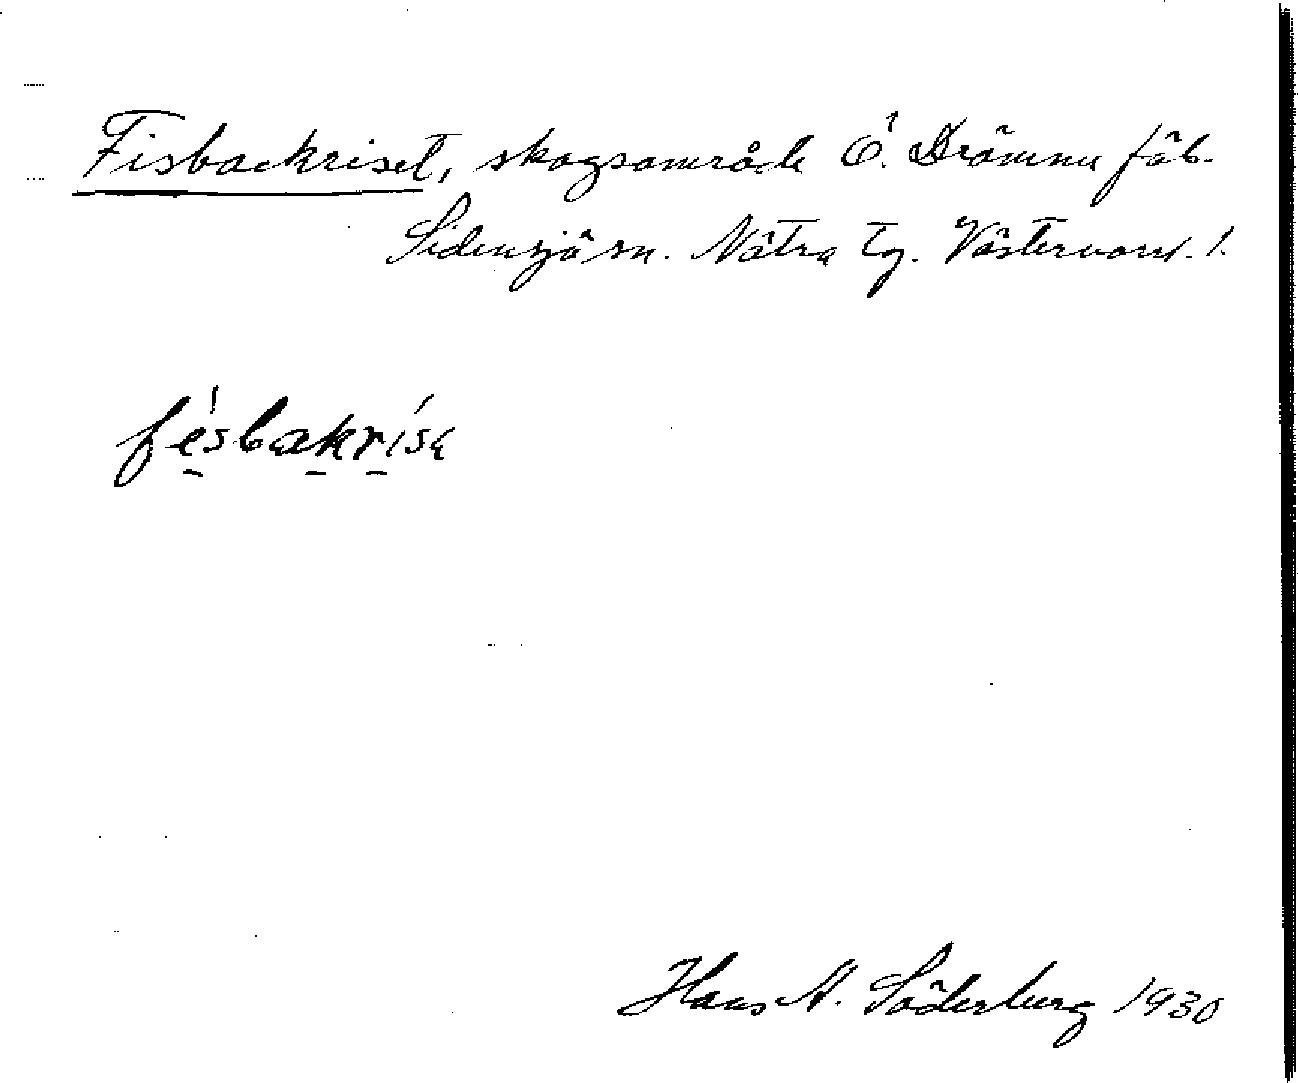 Fisbackriset, skogsområde Ö. Drömme fäb.
Sidensjö sn. Nätra tg. Västernorrl. l.
fésbakrísa
Hans A. Söderberg 1930